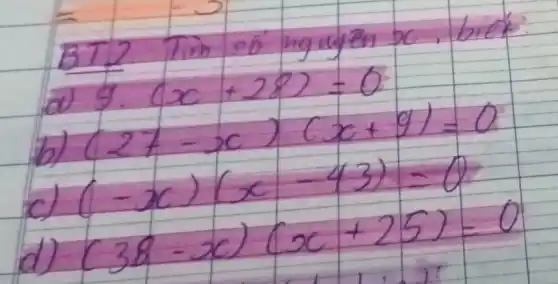 BT2. Tìm số nguyên x, biết
a) 9. (x + 28) = 0
b) (27 - x) (x + 9) = 0
c) (-x) (x - 43) = 0
d) (38 - x) (x + 25) = 0